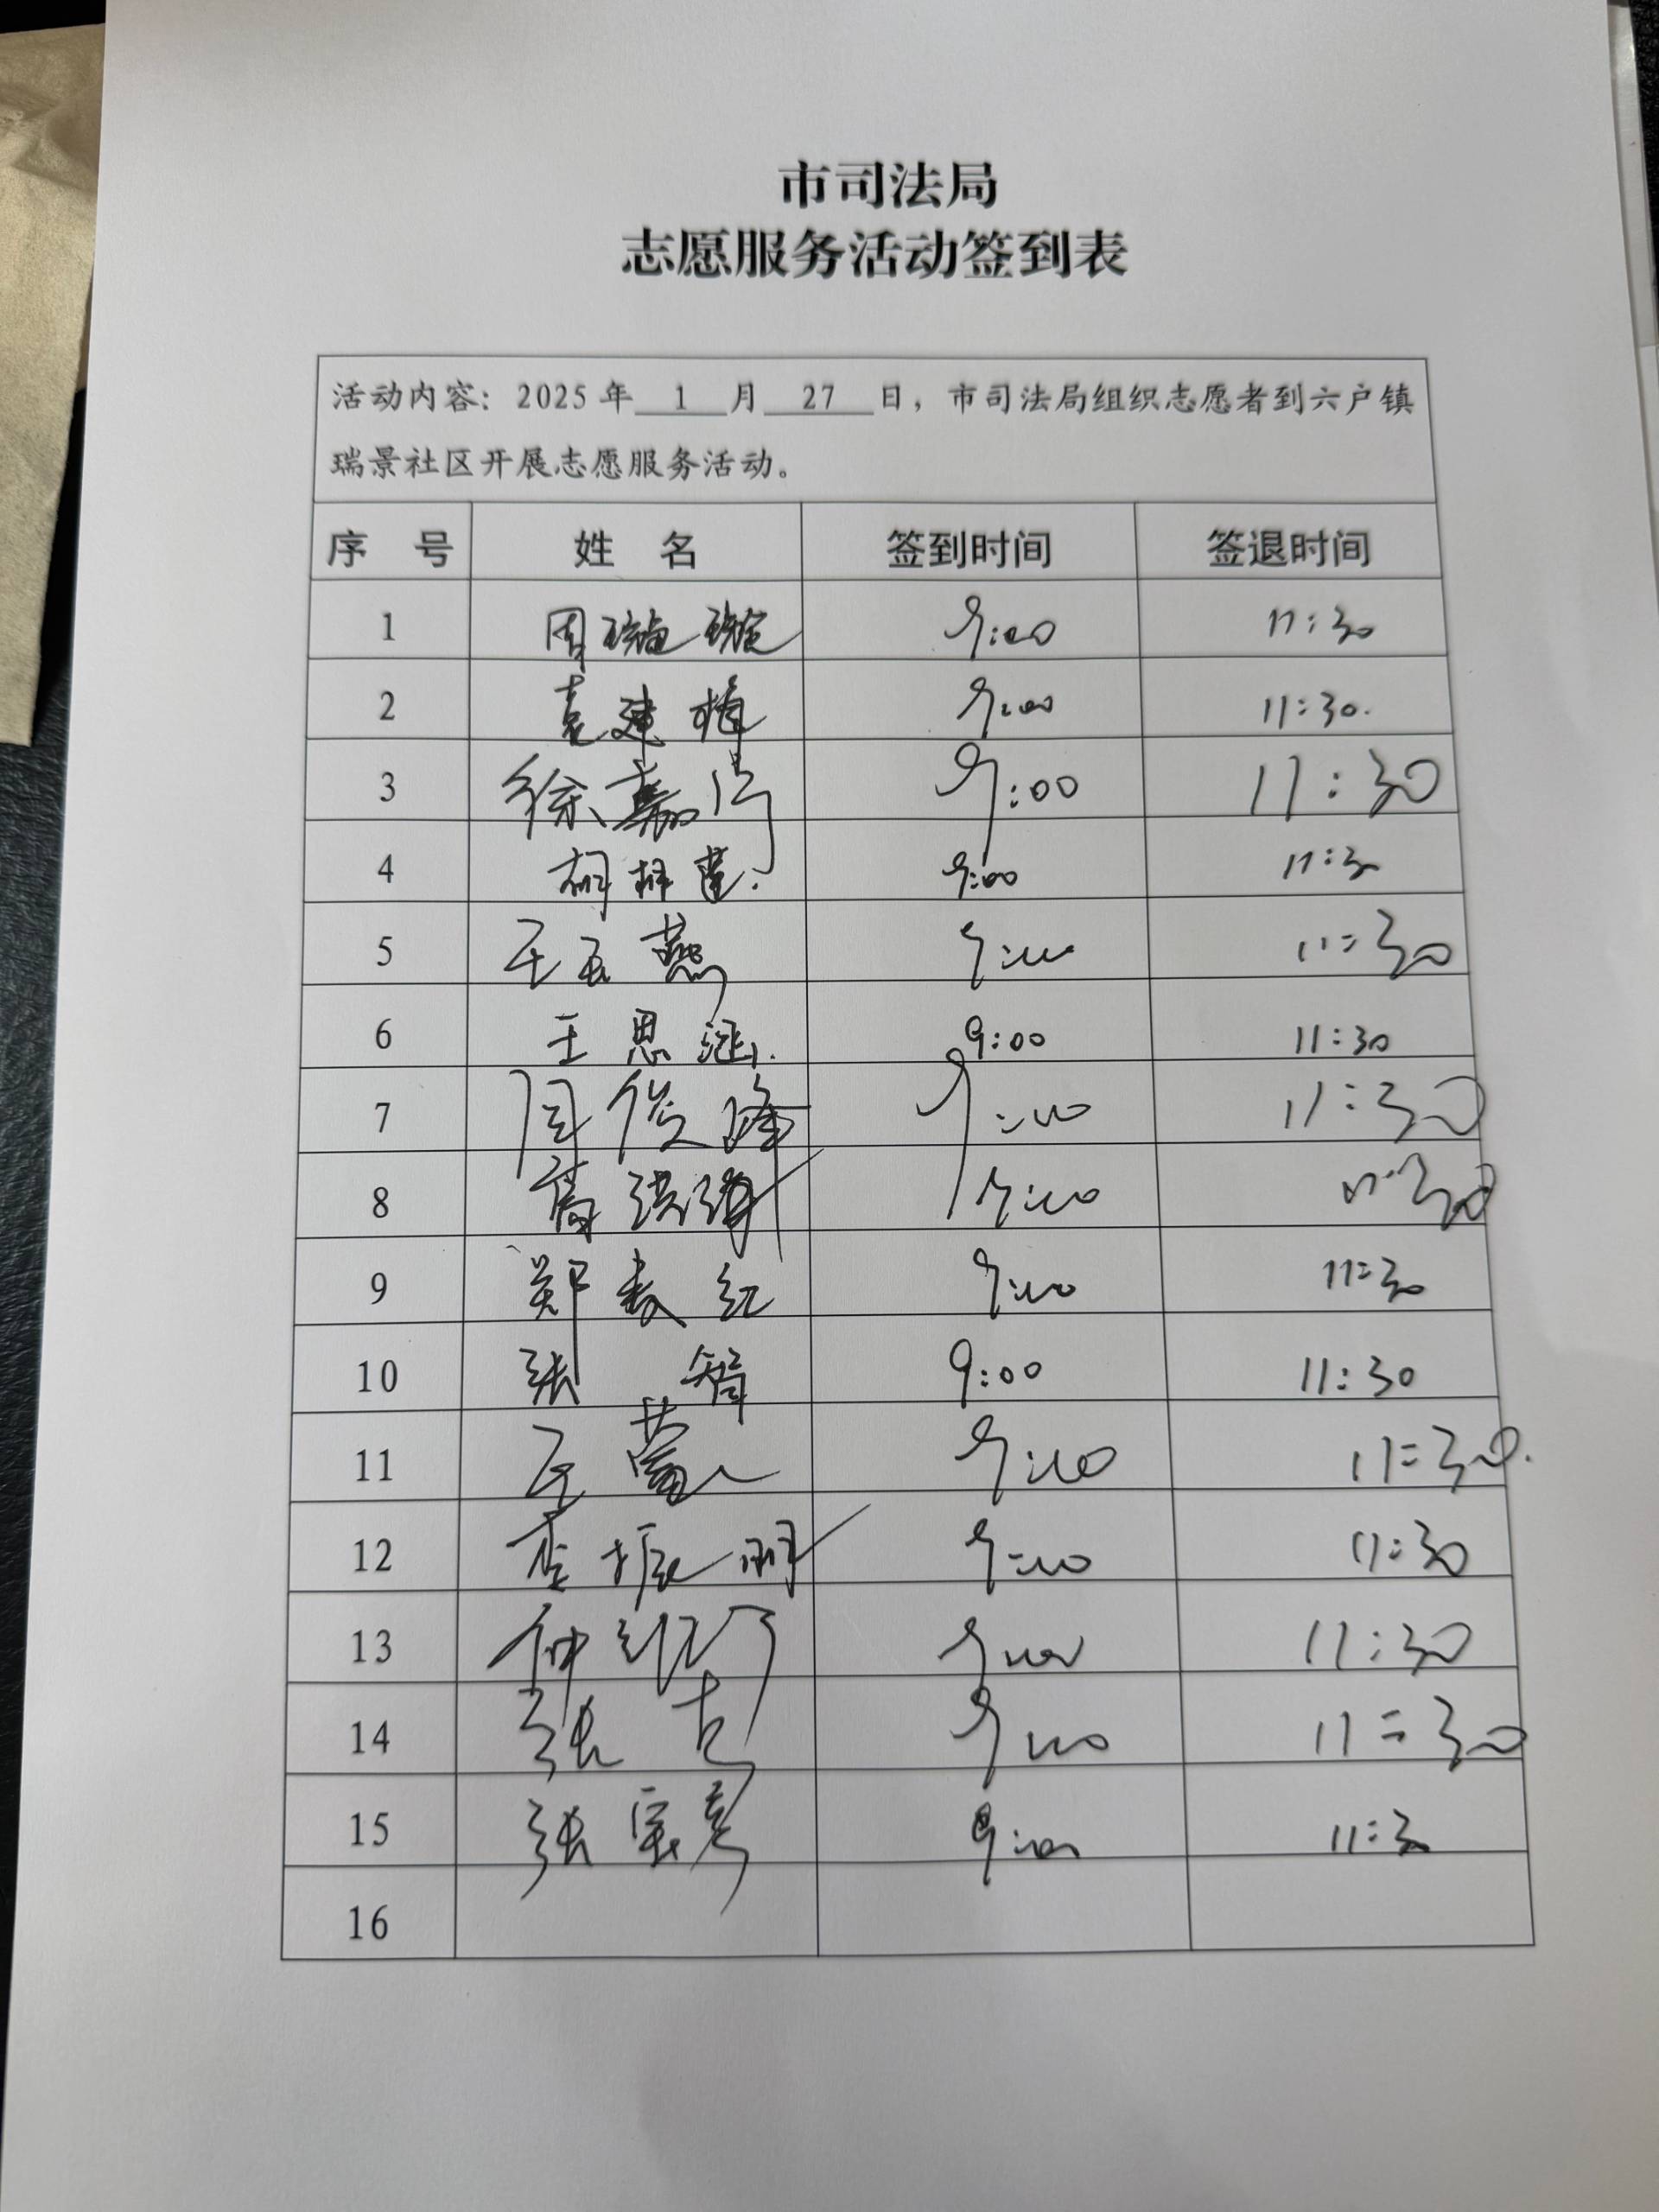 市司法局
志愿服务活动签到表
活动内容：2025年 1 月 27 日，市司法局组织志愿者到六户镇
瑞景社区开展志愿服务活动。
序 号 姓 名 签到时间 签退时间
1 周 9:00 11:30
2 袁建梅 9:00 11:30.
3 徐嘉 9:00 11:30
4 胡 9:00 11:30
5 王玉燕 9:00 11:30
6 王思涵 9:00 11:30
7 周俊峰 9:00 11:30
8 9:00 11:30
9 郑春红 9:00 11:30
10 张 9:00 11:30
11 王 9:00 11:30.
12 李振明 9:00 11:30
13 仲 9:00 11:30
14 张 9:00 11:30
15 张 9:00 11:30
16